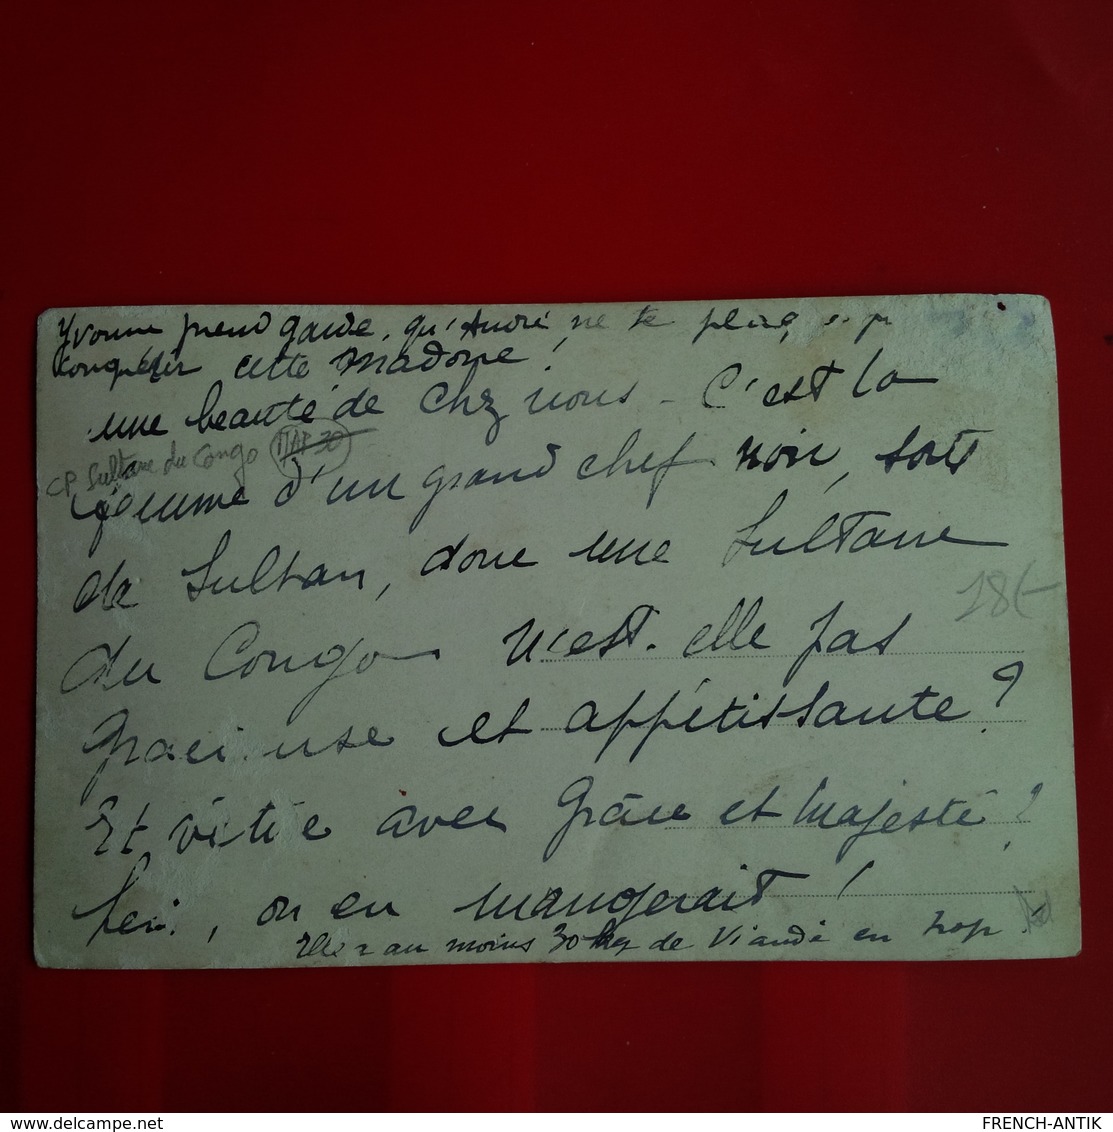 Yvonne prend garde, qu'André, ne te
conquérir cette madone!
une beauté de chez nous - C'est la
CP Sultane du Congo
femme d'un grand chef noir, sorte
de Sultan, donc une Sultane
18€
du Congo N'est-elle pas
gracieuse et appétissante?
Et vétue avec Grâce et Majesté?
on en mangerait!
Elle a au moins 30 kg de Viande en trop.
FRENCH-ANTIK
delcampe.net